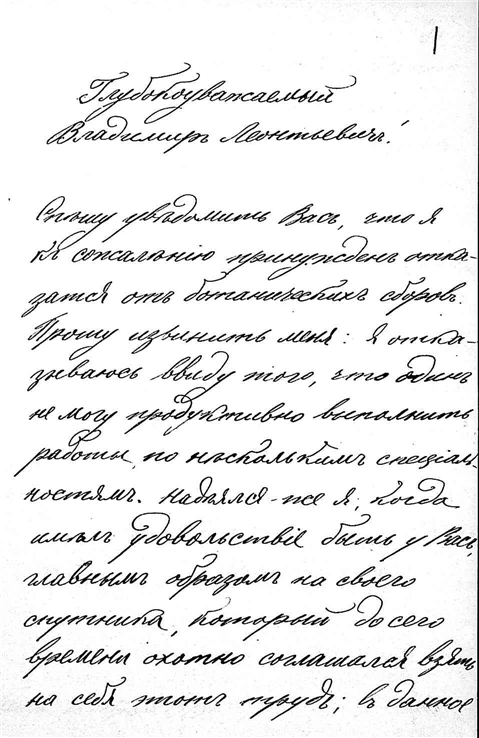 1
Глубокоуважаемый
Владимиръ Леонтьевичъ!
Спѣшу увѣдомить Васъ, что я
къ сожалѣнію принужденъ отка-
затся отъ ботаническихъ сборовъ.
Прошу извинить меня: я отка-
зываюсь ввиду того, что одинъ
не могу продуктивно выполнить
работы по нѣсколькимъ спеціаль-
ностямъ. Надѣялся-же я, когда
имѣлъ удовольствіе быть у Васъ,
главнымъ образомъ на своего
спутника, который до сего
времени охотно соглашался взять
на себя этотъ трудъ; въ данное